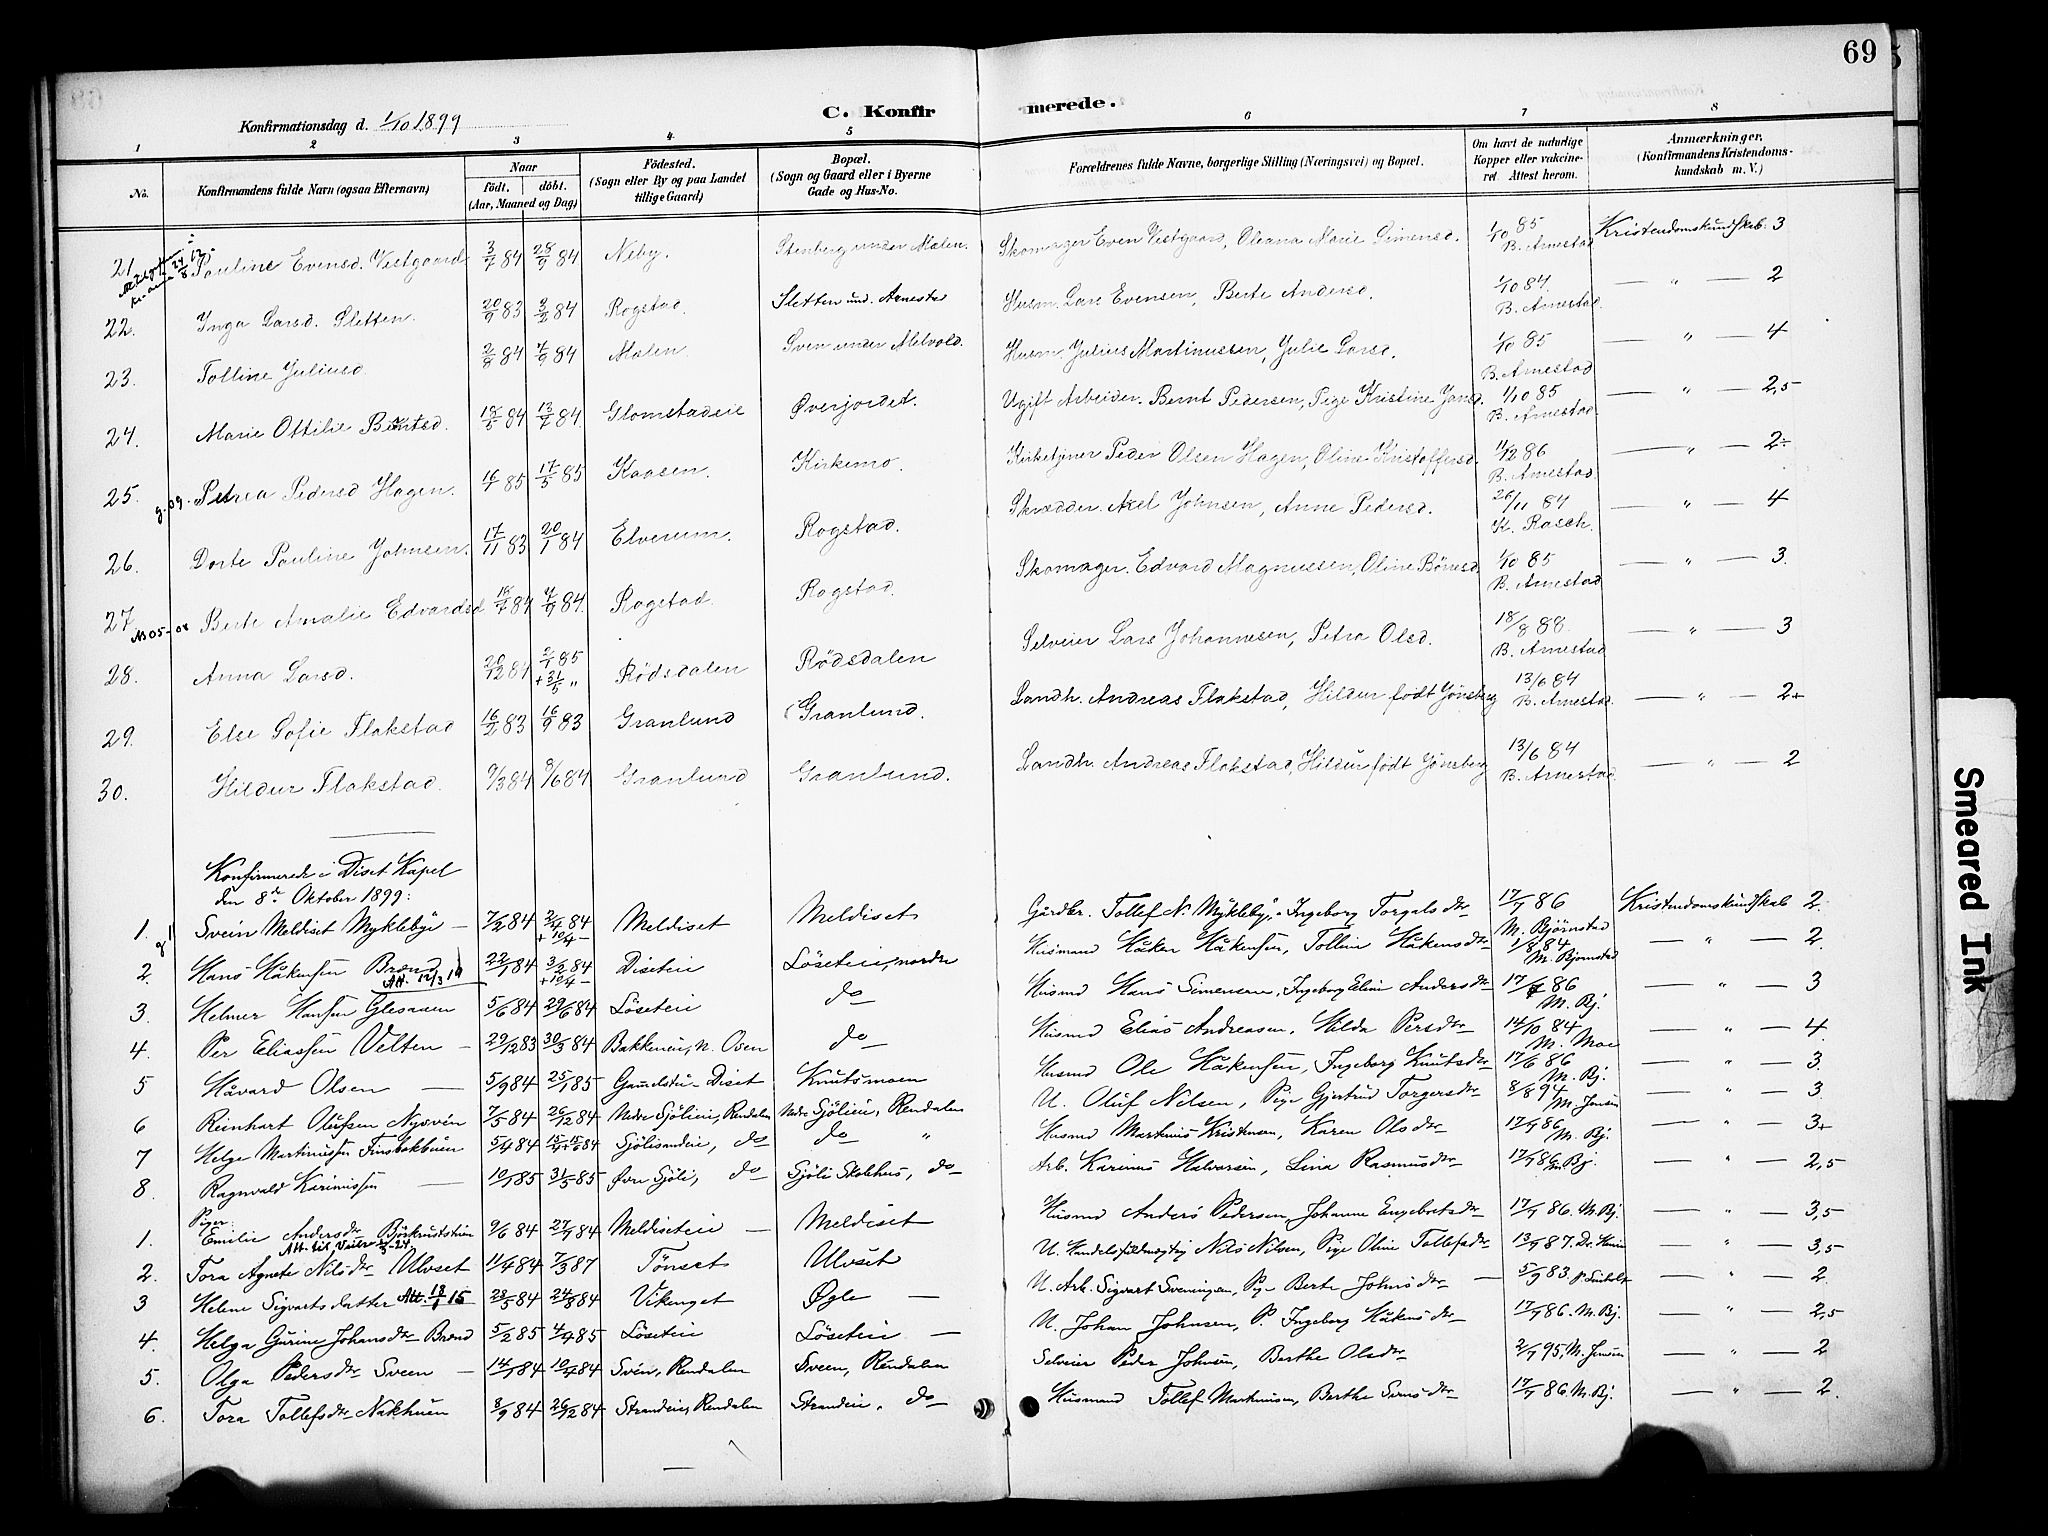 69
Konfirmationsdag d. 1/10 1899
C. Konfirmerede.
1 2 3 4 5 6 7 8
No. Konfirmandens fulde Navn (ogsaa Efternavn) Naar født. døbt. (Aar, Maaned og Dag) Fødested. (Sogn eller By og paa Landet tillige Gaard) Bopæl. (Sogn og Gaard eller i Byerne Gade og Hus-No. Forældrenes fulde Navne, borgerlige Stilling (Næringsvei) og Bopæl. Om havt de naturlige Kopper eller vakcineret. Attest herom. Anmærkninger. (Konfirmandens Kristendomskundskab m. V.)
21. Pauline Evensd. Vestgaard 84 84 Neby. Stenberg under Mælen. Skomager Even Vestgaard, Oleana Marie Simensd. 1/10 85 B. Arnestad Kristendomskundskab: 3
22. Inga Larsd. Sletten. 20/9 83 84 Rogstad. Sletten und. Arnestad Husm. Lars Evensen, Berte Andersd. 1/10 84. B. Arnestad. — " — 2
23. Tolline Juliusd. 2/8 84 84 Mælen. Sven under Melvold. Husm. Julius Martinussen, Julie Larsd. 1/10 85 B. Arnestad — " — 4
24. Marie Ottilie Berntsd. 84 84 Glomstadeie Øverjordet. Ugift Arbeider. Bernt Pedersen, Pige Kristine Jansd. 1/10 85 B. Arnestad — " — 2,5
25. Petrea Pedersd Hagen. 85 17/5 85 Kaasen. Kirkemo. Kirketjner Peder Olsen Hagen, Oline Kristoffersd. 86 B. Arnestad. — " — 2÷
26. Dorte Pauline Johnsen. 17/11 83 20/1 84 Elverum. Rogstad. Skrædder. Axel Johnsen, Anne Pedersd. 26/11 84 K. Rasch. — " — 4
27. Berte Amalie Edvardsd 84 84. Rogstad. Rogstad. Skomager. Edvard Magnussen, Oline Børresd. 1/10 85 B. Arnestad — " — 3.
28. Anna Larsd. 20/12 84 2/1 85 + 31/5 " Rødsdalen Rødsdalen Selveier Lars Johannesen, Petra Olsd. 18/8 88. B. Arnestad — " — 3
29. Else Sofie Flakstad 16/2 83 16/9 83 Granlund Granlund. Landh. Andreas Flakstad, Hildur født Jønsberg 13/6 84 B. Arnestad. — " — 2+
30. Hildur Flakstad. 9/3 84 8/6 84 Granlund Granlund. Landh. Andreas Flakstad, Hildur født Jønsberg 13/6 84 B. Arnestad — " — 2
Konfirmerede i Diset Kapel
den 8de Oktober 1899:
1. Svein Meldiset Myklebye — 7/2 84 2/4 84 + 10/4 — Meldiset Meldiset Gårdbr. Tollef N. Mykleby, Ingeborg Torgalsdtr 17/7 86 M. Bjørnstad Kristendomskundskab 2.
2. Hans Håkensen Brænd 22/1 84 3/2 84 + 10/4 — Diseteie Løseteie, nordre Husmand Håken Håkensen, Tolline Håkensdtr 1/8 84 M. Bjørnstad — " — 2.
3. Helmer Hansen Glesaaen 5/6 84 29/6 84 Løseteie do Husmd Hans Simensen, Ingeborg Eline Andersdtr 17/7 86 M. Bj. — " — 3
4. Per Eliassen Velten — 29/12 83 30/3 84 Bakkeneie, N. Osen do Husmd Elias Andreasen, Hilda Persdtr 14/10 84 M. Moe — " — 4.
5 Håvard Olsen — 5/9 84 25/1 85 Diset Knutsmoen Husmd Ole Håkensen, Ingeborg Knutsdtr 17/6 86 M. Bj. — " — 3.
6 Reinhart Olufsen Nysveen 7/5 84 26/12 84 Nedre Sjølieie, Rendalen Nedre Sjølieie, Rendalen U. Oluf Nilsen, Pige Gjertrud Torgersdtr 8/8 94 M. Jensen — " — 3.
7 Helge Martinussen Finsbakbråen 5/4 84 84 Sjøliseie, do do " Husmd Martinus Kristensen, Karen Olsdtr 17/7 86 M. Bj. — " — 3+
8. Ragnvald Karinussen — 10/1 85 31/5 85 Øvre Sjøli, do Sjøli Skolehus, do Arb. Karinus Halvorsen, Lina Rasmusdtr 17/7 86 M. Bj. — " — 2,5
Piger:
1. Emilie Andersdtr 9/6 84 27/7 84 Meldiseteie — Meldiset Husmd Anders Pedersen, Johanne Engebretsdtr 17/7 86. M. Bj. — " — 3,5
2. Tora Agnete Nilsdtr Ulvset 11/4 84 7/3 87 Tønset Ulvset U. Handelsfuldmægtig Nils Nilsen, Pige Oline Tollefsdtr 13/7 87. — " — 3,5
3 Helene Sigvartsdatter Att. 15 23/5 84 24/8 84 Vikenget Øgle — U. Arb. Sigvart Sveningsen, Pige Berte Johnsdtr — 5/9 83. — " — 2.
4. Helga Gurine Johansdtr Brænd 5/2 85 4/4 85 Løseteie Løseteie — U. Johan Johnsen, P. Ingeborg Håkensdtr 17/7 86. M. Bj. — " — 2,5
5. Olga Pedersdtr Sveen — 14/1 84 10/4 84 Sveen, Rendalen Sveen, Rendalen Selveier Peder Johnsen, Berthe Olsdtr 2/7 95, M. Jensen — " — 2
6. Tora Tollefsdtr Nakhuen 3/9 84 26/12 84 Strandeie, Rendalen Strandeie, do Husmand Tollef Martinusen, Berthe Svensdtr 17/7 86. M. Bj. — " — 2.
Smeared Ink